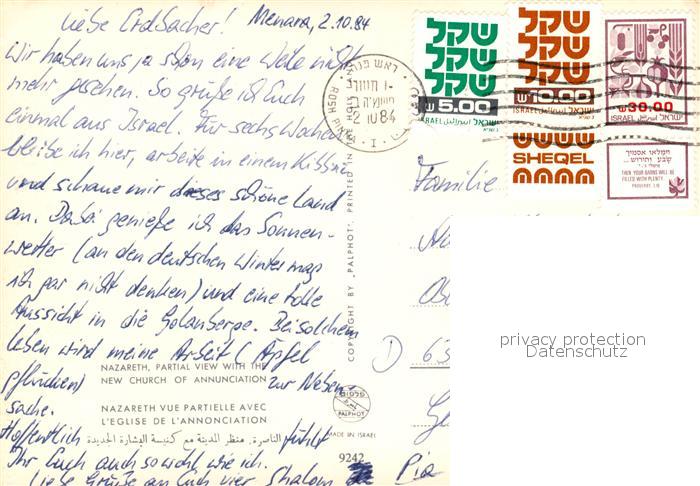 Liebe Erdbacher! Menara, 2.10.84
Wir haben uns ja schon eine Weile nicht
mehr gesehen. So grüße ich Euch
einmal aus Israel. Für sechs Wochen
bleibe ich hier, arbeite in einem Kibbuz
und schaue mir dieses schöne Land
an. Dabei genieße ich das Sonnen-
wetter (an den deutschen Winter mag
ich gar nicht denken) und eine tolle
Aussicht in die Golanberge. Bei solchem
Leben wird meine Arbeit (Äpfel
pflücken) zur Neben-
sache.
Hoffentlich fühlt
Ihr Euch auch so wohl, wie ich.
Liebe Grüße an Euch vier Shalom Pia
NAZARETH, PARTIAL VIEW WITH THE
NEW CHURCH OF ANNUNCIATION
NAZARETH VUE PARTIELLE AVEC
L'EGLISE DE L'ANNONCIATION
الناصرة، منظر المدينة مع كنيسة البشارة الجديدة
COPYRIGHT BY "PALPHOT" PRINTED IN
פלפוט
PALPHOT
MADE IN ISRAEL
9242
ראש פנה
-2 10 84
שקל
שקל
שקל
5.00
ISRAEL اسرائيل ישראל
שקל
שקל
שקל
10.00
ISRAEL اسرائيل ישראל
SHEQEL
30.00
ISRAEL اسرائيل ישראל
וימלאו אסמיך
שבע ותירוש...
THEN YOUR BARNS WILL BE
FILLED WITH PLENTY
PROVERBS 3,10
Familie
D 63
privacy protection
Datenschutz